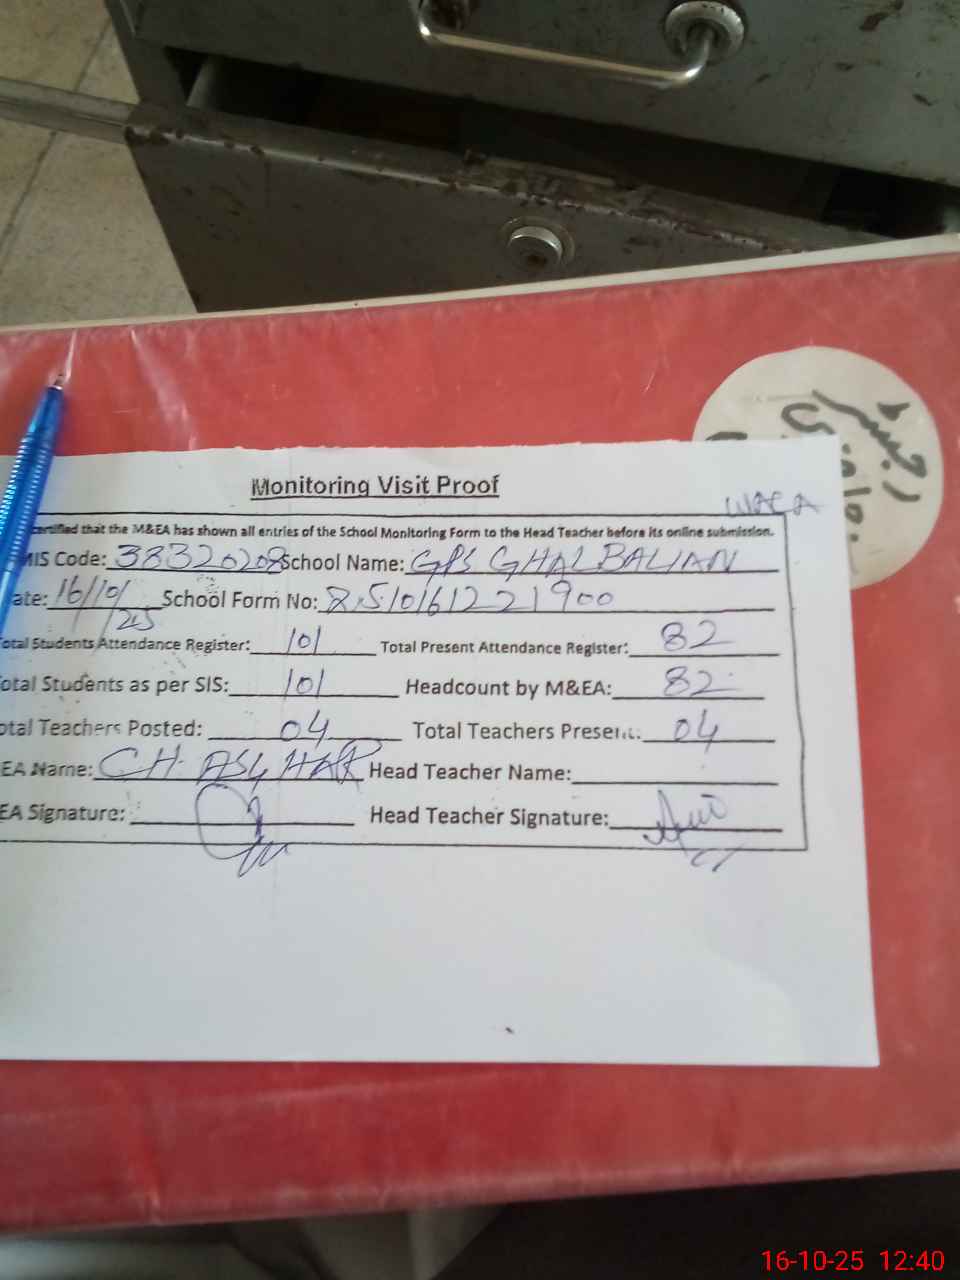 رجسٹر
حاضری
Monitoring Visit Proof
WACA
certified that the M&EA has shown all entries of the School Monitoring Form to the Head Teacher before its online submission.
MIS Code: 38320208 School Name: GPS GHAL BALIAN
ate: 16/10/25 School Form No: 2510161221900
otal Students Attendance Register: 101 Total Present Attendance Register: 82
otal Students as per SIS: 101 Headcount by M&EA: 82
otal Teachers Posted: 04 Total Teachers Present: 04
EA Name: CH. ASGHAR Head Teacher Name:
EA Signature: Head Teacher Signature:
16-10-25 12:40